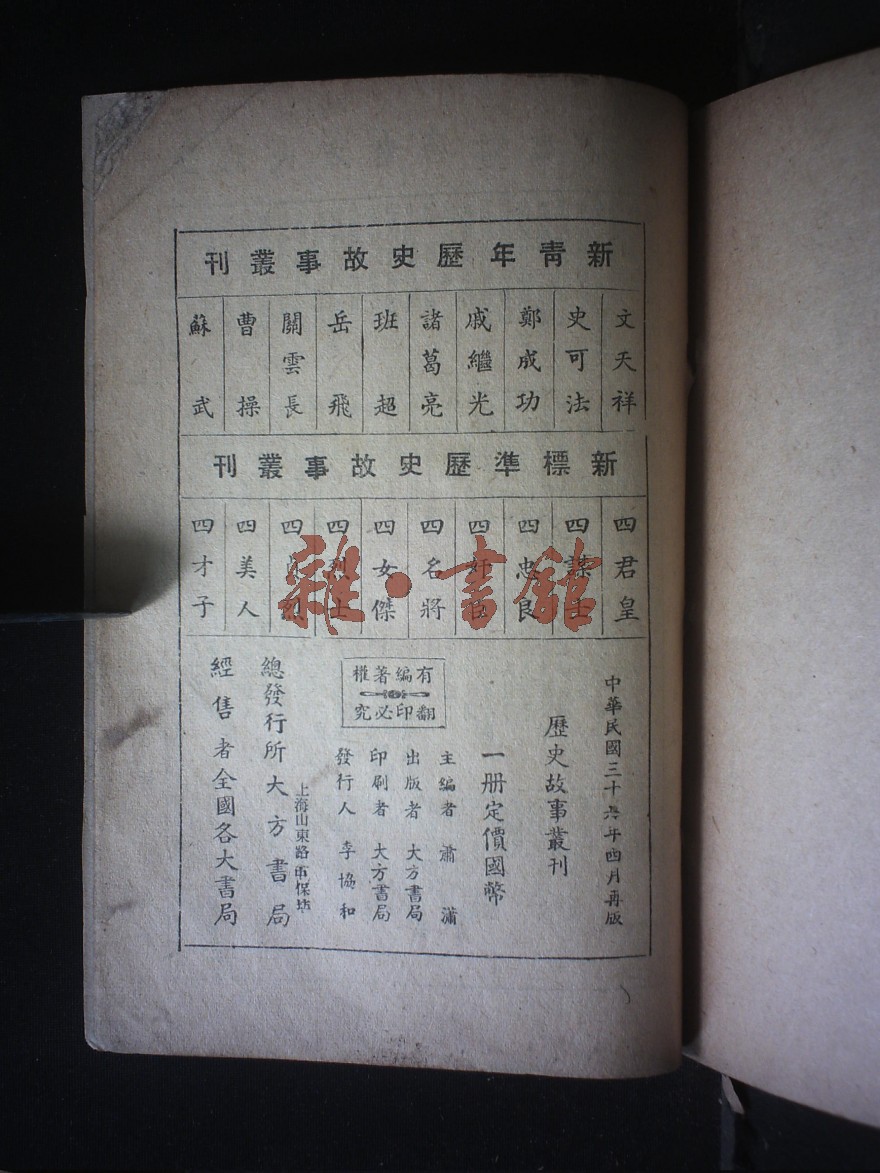 新青年歷史故事叢刊
文天祥
史可法
鄭成功
戚繼光
諸葛亮
班超
岳飛
關雲長
曹操
蘇武
新標準歷史故事叢刊
四君皇
四謀士
四忠良
四奸臣
四名將
四女傑
四烈士
四貞烈
四美人
四才子
雜·書舘
中華民國三十六年四月再版
歷史故事叢刊
一册定價國幣
有編著權
翻印必究
主編者 蕭瀟
出版者 大方書局
印刷者 大方書局
發行人 李協和
上海山東路
總發行所大方書局
經售者全國各大書局